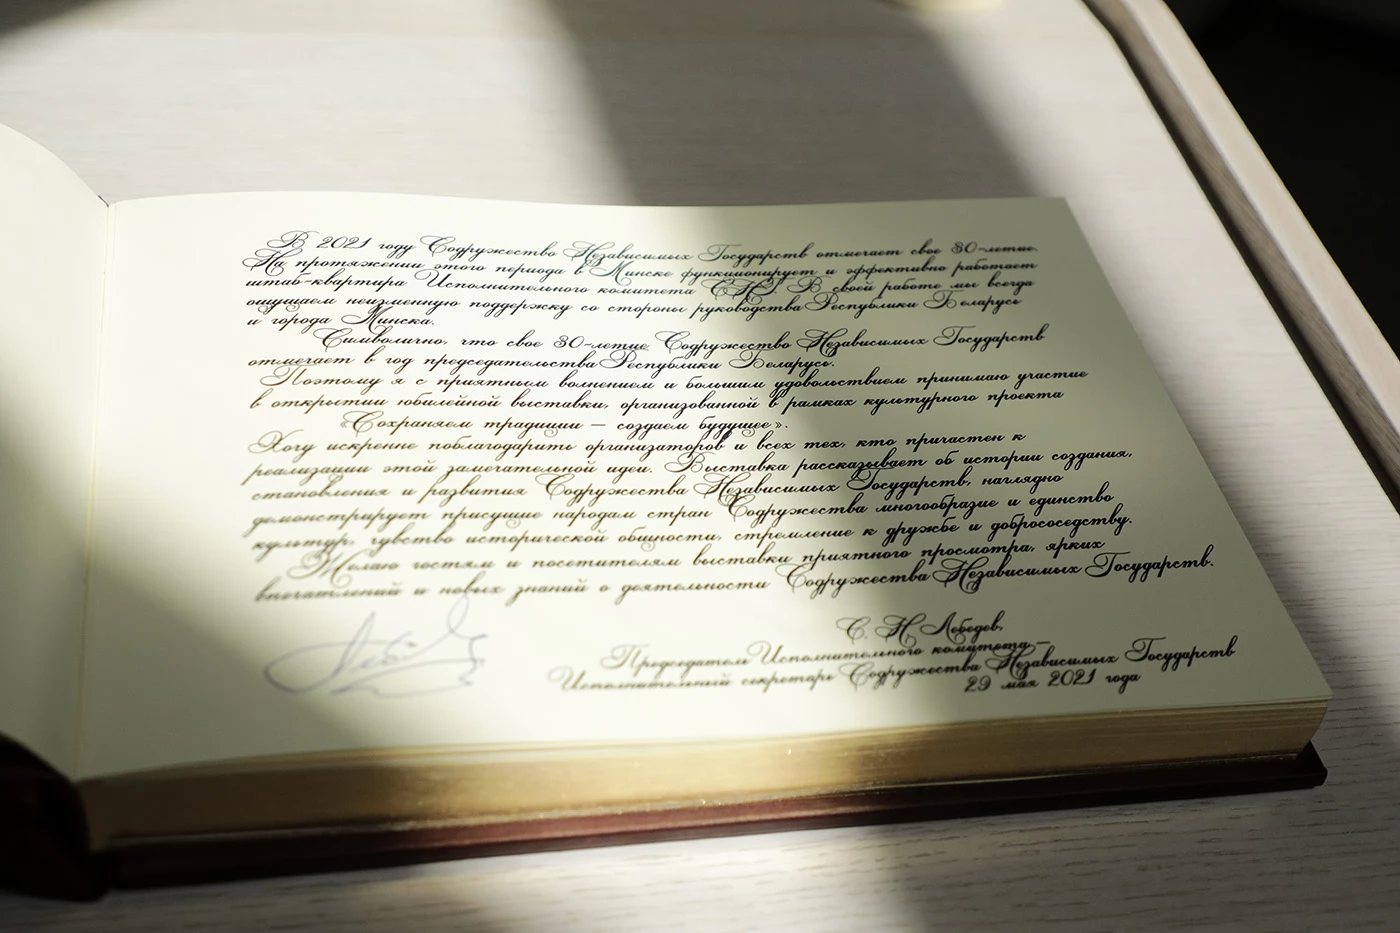 В 2021 году Содружество Независимых Государств отмечает свое 30-летие.
На протяжении этого периода в Минске функционирует и эффективно работает
штаб-квартира Исполнительного комитета СНГ. В своей работе мы всегда
ощущаем неизменную поддержку со стороны руководства Республики Беларусь
и города Минска.
Символично, что свое 30-летие Содружество Независимых Государств
отмечает в год председательства Республики Беларусь.
Поэтому я с приятным волнением и большим удовольствием принимаю участие
в открытии юбилейной выставки, организованной в рамках культурного проекта
«Сохраняем традиции – создаем будущее».
Хочу искренне поблагодарить организаторов и всех тех, кто причастен к
реализации этой замечательной идеи. Выставка рассказывает об истории создания,
становления и развития Содружества Независимых Государств, наглядно
демонстрирует присущие народам стран Содружества многообразие и единство
культур, чувство исторической общности, стремление к дружбе и добрососедству.
Желаю гостям и посетителям выставки приятного просмотра, ярких
впечатлений и новых знаний о деятельности Содружества Независимых Государств.
С. Н. Лебедев,
Председатель Исполнительного комитета –
Исполнительный секретарь Содружества Независимых Государств
29 мая 2021 года